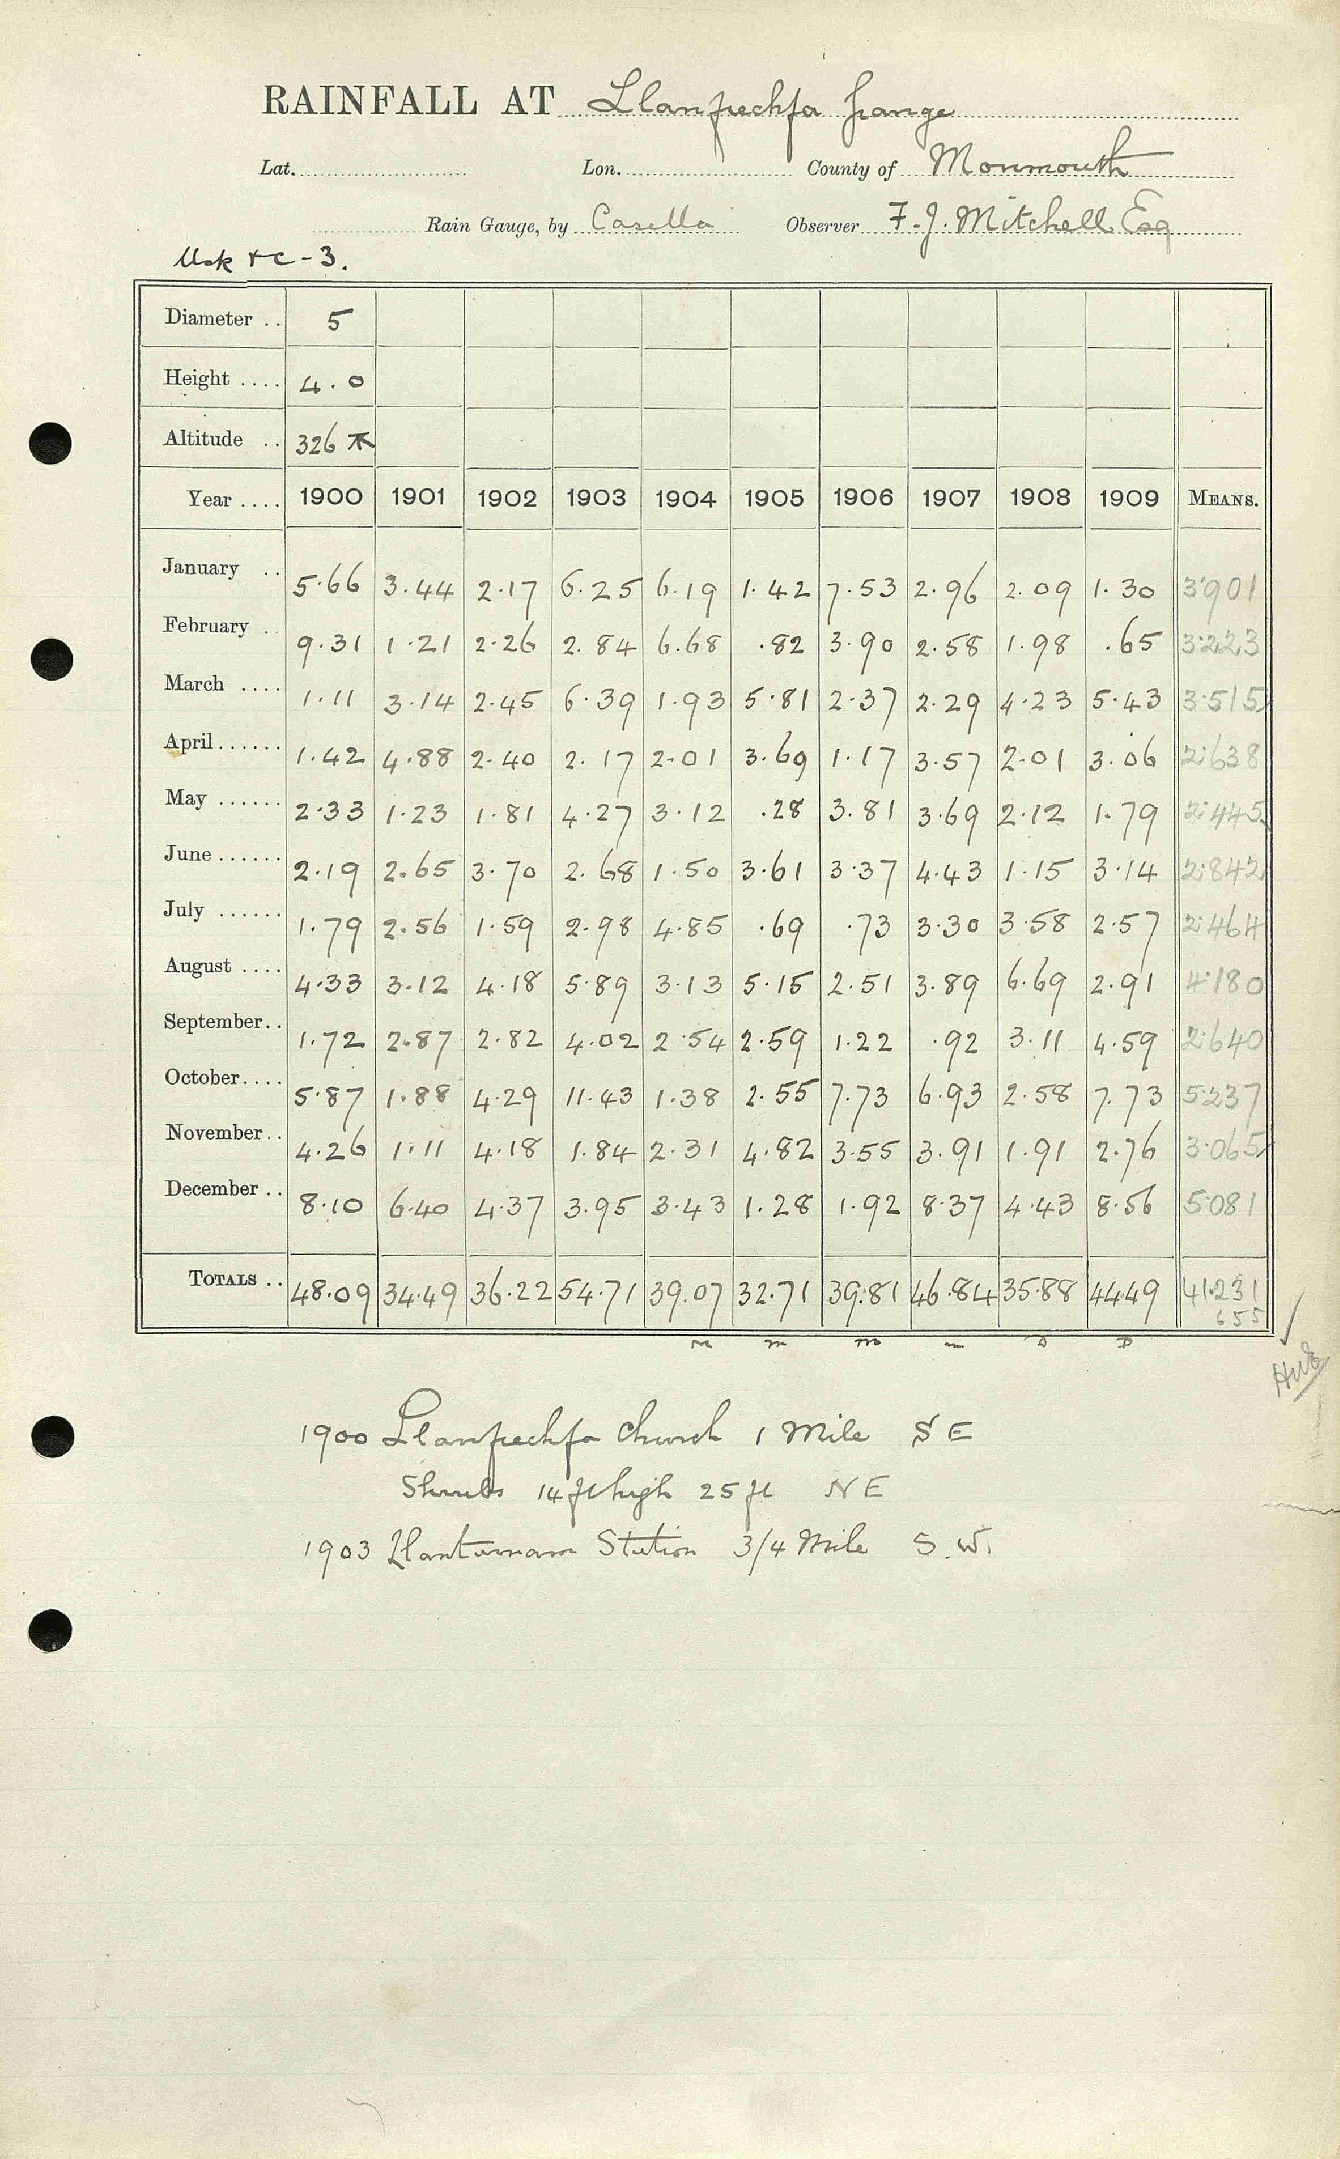 RAINFALL AT Llanfrechfa Grange
Lat. Lon. County of Monmouth
Rain Gauge, by Casella Observer F. J. Mitchell Esq
Usk + C - 3.
Diameter .. 5
Height .... 4.0
Altitude .. 326 T
Year .... 1900 1901 1902 1903 1904 1905 1906 1907 1908 1909 MEANS.
January .. 5.66 3.44 2.17 6.25 6.19 1.42 7.53 2.96 2.09 1.30 3.901
February .. 9.31 1.21 2.26 2.84 6.68 .82 3.90 2.58 1.98 .65 3.223
March .... 1.11 3.14 2.45 6.39 1.93 5.81 2.37 2.29 4.23 5.43 3.515
April...... 1.42 4.88 2.40 2.17 2.01 3.69 1.17 3.57 2.01 3.06 2.638
May ...... 2.33 1.23 1.81 4.27 3.12 .28 3.81 3.69 2.12 1.79 2.445
June ...... 2.19 2.65 3.70 2.68 1.50 3.61 3.37 4.43 1.15 3.14 2.842
July ...... 1.79 2.56 1.59 2.98 4.85 .69 .73 3.30 3.58 2.57 2.464
August .... 4.33 3.12 4.18 5.89 3.13 5.15 2.51 3.89 6.69 2.91 4.180
September.. 1.72 2.87 2.82 4.02 2.54 2.59 1.22 .92 3.11 4.59 2.640
October.... 5.87 1.88 4.29 11.43 1.38 2.55 7.73 6.93 2.58 7.73 5.237
November.. 4.26 1.11 4.18 1.84 2.31 4.82 3.55 3.91 1.91 2.76 3.065
December .. 8.10 6.40 4.37 3.95 3.43 1.28 1.92 8.37 4.43 8.56 5.081
TOTALS .. 48.09 34.49 36.22 54.71 39.07 32.71 39.81 46.84 35.88 44.49 41.231
655
1900 Llanfrechfa Church 1 Mile S E
Shrubs 14 ft high 25 ft N E
1903 Llantarnam Station 3/4 Mile S. W.